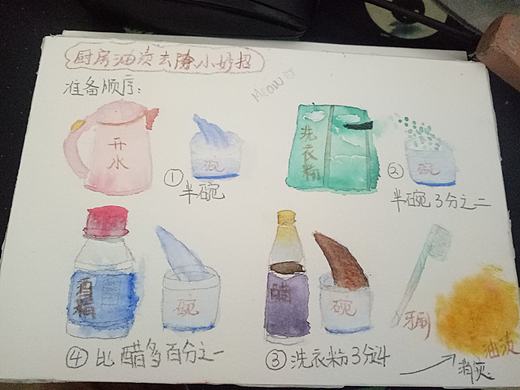 厨房油渍去除小妙招
准备顺序:
Meow
开水
碗
①半碗
洗衣粉
碗
②半碗3分之二
酒精
碗
④比醋多百分之一
醋
碗
③洗衣粉3分4
牙刷
油渍